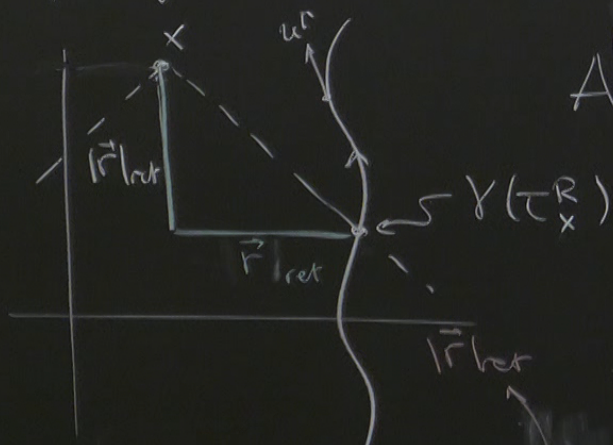 x
u^μ
A
|r⃗|ret
γ(τ_x^R)
r⃗|ret
|r⃗|ret